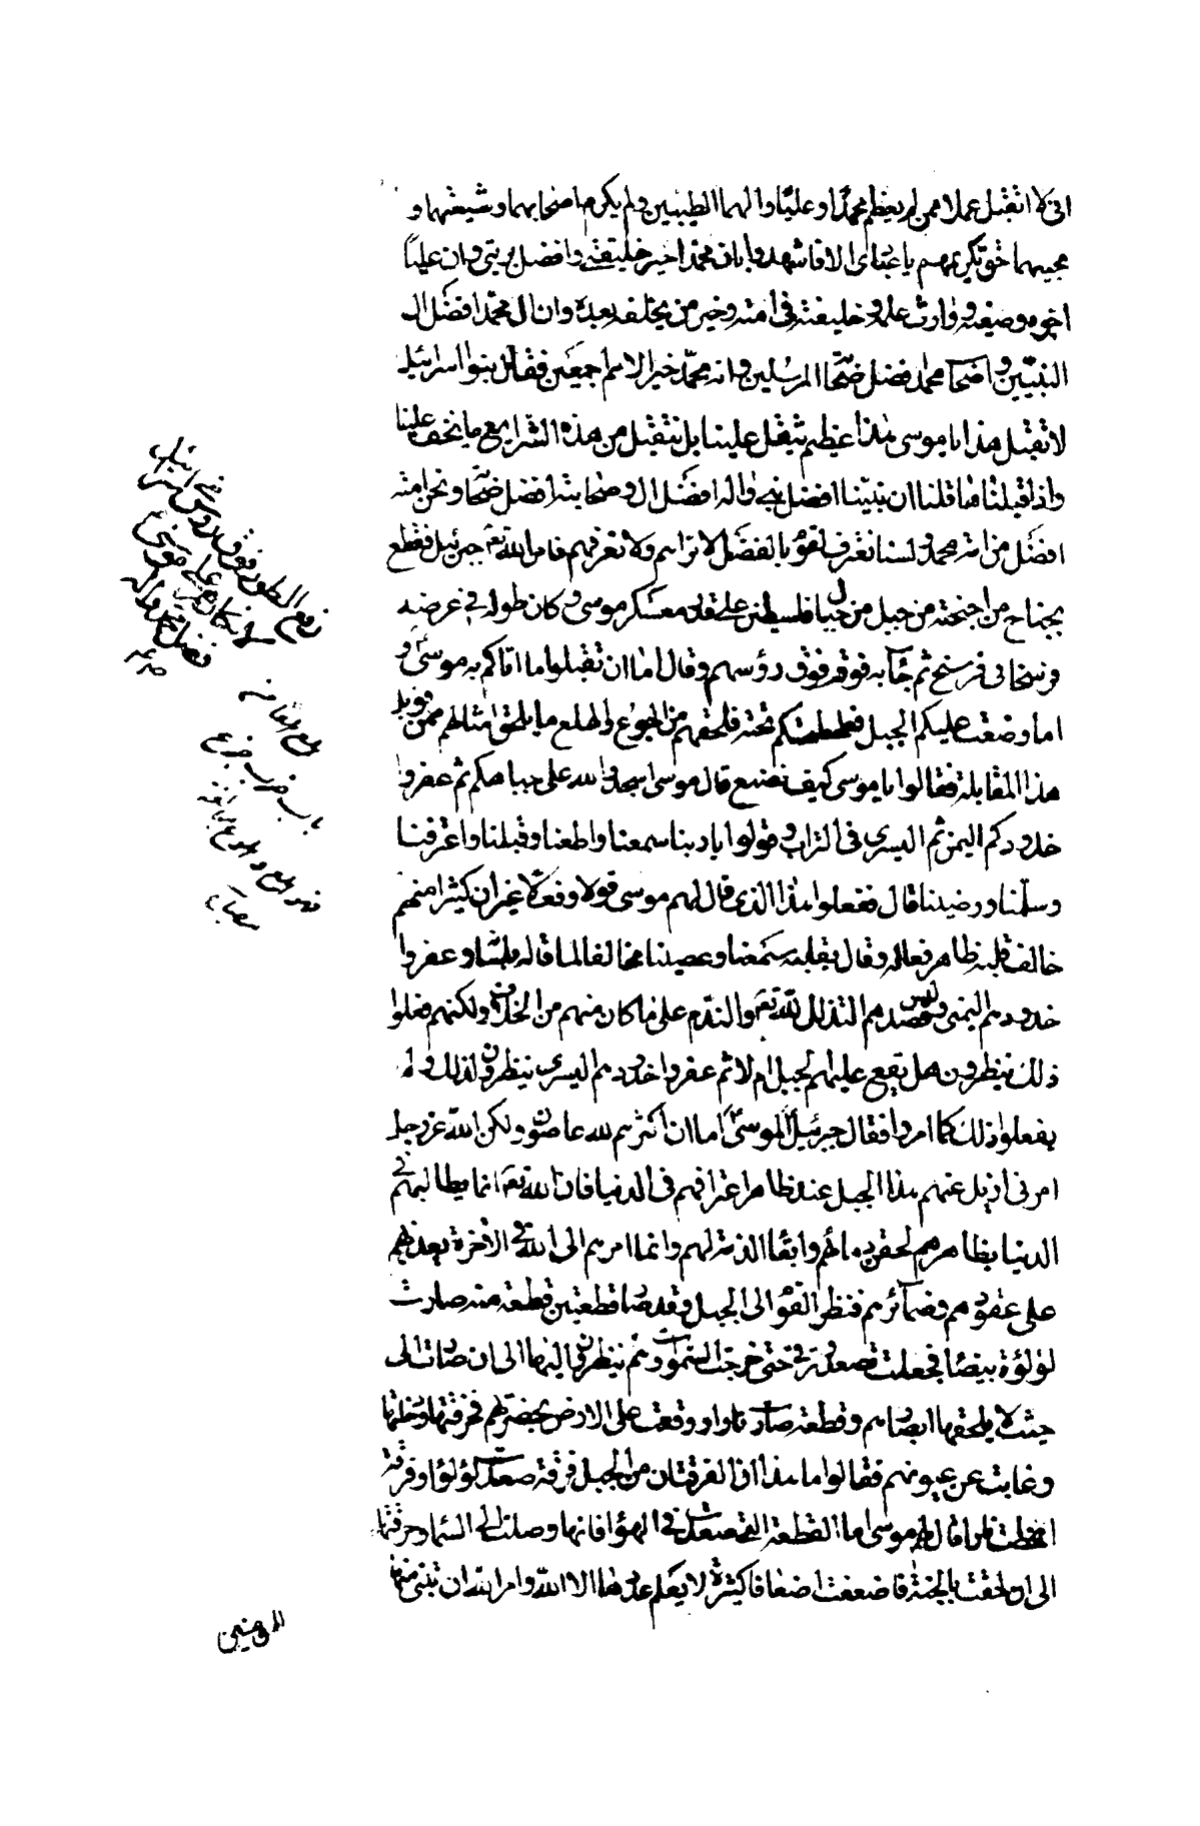 انى لا اتقبل عملا ممن لم يعظم محمدا وعليا والهما الطيبين ولم يكرم اصحابهما وشيعتهما و
محبيهما حق تكريمهم يا عباد الا فاشهدوا بان محمدا خير خليقتى وافضل بريتى وان عليا
اخوه وصفيه ووارث علمه وخليفته فى امته وخير من يخلفه بعده وان ال محمد افضل ال
النبيين واصحاب محمد افضل صحابة المرسلين وامة محمد خير الامم اجمعين فقال بنو اسرائيل
لا نقبل هذا يا موسى هذا عظيم يثقل علينا بل نتقبل من هذه الشرايع ما يخف علينا
واذا قبلناها قلنا ان نبينا افضل نبى واله افضل ال وصحابته افضل صحابة ونحن امته
افضل من امة محمد ولسنا نعترف لقوم بالفضل لا نراهم ولا نعرفهم فامر الله تعالى جبرئيل فقطع
بجناح من اجنحته من جبل من جبال فلسطين على قدر معسكر موسى وكان طوله فى عرضه
فرسخا فى فرسخ ثم جاء به فوقه فوق رؤسهم وقال اما ان تقبلوا ما اتاكم به موسى و
اما وضعت عليكم الجبل فطحطحتكم تحته فلحقهم من الجزع والهلع ما يلحق امثالهم ممن قوبل
هذا المقابلة فقالوا يا موسى كيف نصنع قال موسى اسجدوا لله على جباهكم ثم عفروا
خدودكم اليمنى ثم اليسرى فى التراب وقولوا يا ربنا سمعنا واطعنا وقبلنا واعترفنا
وسلمنا ورضينا قال ففعلوا هذا الذى قال لهم موسى قولا وفعلا غير ان كثيرا منهم
خالف قلبه ظاهر فعاله وقال بقلبه سمعنا وعصينا مخالفا لما قاله بلسانه وعفروا
خدودهم اليمنى وليس قصدهم التذلل لله تعالى والندم على ما كان منهم من الخلاف ولكنهم فعلوا
ذلك ينظرون هل يقع عليهم الجبل ام لا ثم عفروا خدودهم اليسرى ينظرون لذلك ولم
يفعلوا ذلك كما امروا فقال جبرئيل لموسى اما ان اكثرهم لله عاصون ولكن الله عز وجل
امرنى ازيل عنهم هذا الجبل عند ظاهر اعترافهم فى الدنيا فان الله تعالى انما يطالبهم فى
الدنيا بظاهرهم لحقن دمائهم وابقاء الذمة لهم وانما امرهم الى الله فى الاخرة يعذبهم
على عقودهم وضمائرهم فنظر القوم الى الجبل وقد صار قطعتين قطعة منه صارت
لؤلؤة بيضاء فجعلت تصعد وترقى حتى خرجت السموات وهم ينظرون اليها الى ان صارت الى
حيث لا يلحقها ابصارهم وقطعة صارت نارا ووقعت على الارض بحضرتهم فخرقتها ودخلتها
وغابت عن عيونهم فقالوا ما هذا ان الفرقتان من الجبل فرقة صعدت لؤلؤا وفرقة
انحطت نارا قال لهم موسى اما القطعة التى صعدت فى الهواء فانها وصلت الى السماء وخرقتها
الى ان لحقت بالجنة فاضعفت اضعافا كثيرة لا يعلم عددها الا الله وامر الله ان تبنى منها
للمؤمنين
رفع الطور فوق رؤس بنى اسرائيل
لانكارهم على موسى
فضل محمد واله